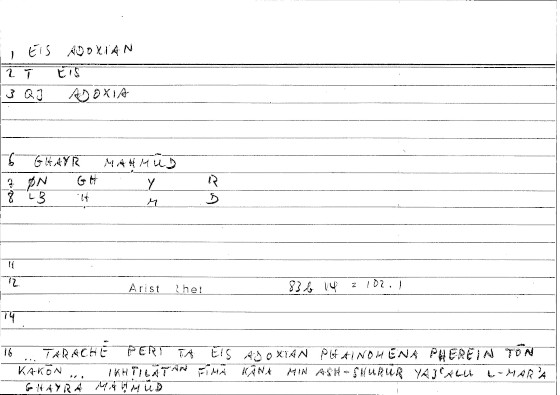 1 EIS ADOXIAN
2 T EIS
3 QJ ADOXIA
6 GHAYR MAḤMŪD
7 ØN GH Y R
8 L3 Ḥ M D
11
12 Arist Rhet 83b 14 = 102.1
14
16 ... TARACHĒ PERI TA EIS ADOXIAN PHAINOMENA PHEREIN TŌN
KAKŌN ... IKHTILĀṬAN FĪMĀ KĀNA MIN ASH-SHURŪR YAJʿALU L-MARʾA
GHAYRA MAḤMŪD